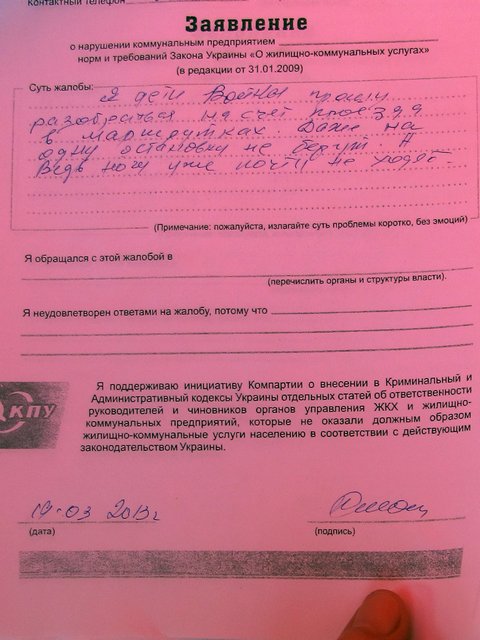 Контактный телефон
Заявление
о нарушении коммунальным предприятием
норм и требований Закона Украины «О жилищно-коммунальных услугах»
(в редакции от 31.01.2009)
Суть жалобы:
Я дети Войны прошу
разобраться на счет проезда
в маршрутках. Даже на
одну остановку не берут. А
Ведь ноги уже почти не ходят.
(Примечание: пожалуйста, излагайте суть проблемы коротко, без эмоций)
Я обращался с этой жалобой в
(перечислить органы и структуры власти).
Я неудовлетворен ответами на жалобу, потому что
Я поддерживаю инициативу Компартии о внесении в Криминальный и
Административный кодексы Украины отдельных статей об ответственности
руководителей и чиновников органов управления ЖКХ и жилищно-
коммунальных предприятий, которые не оказали должным образом
жилищно-коммунальные услуги населению в соответствии с действующим
законодательством Украины.
КПУ
19.03 2013г
(дата)
(подпись)